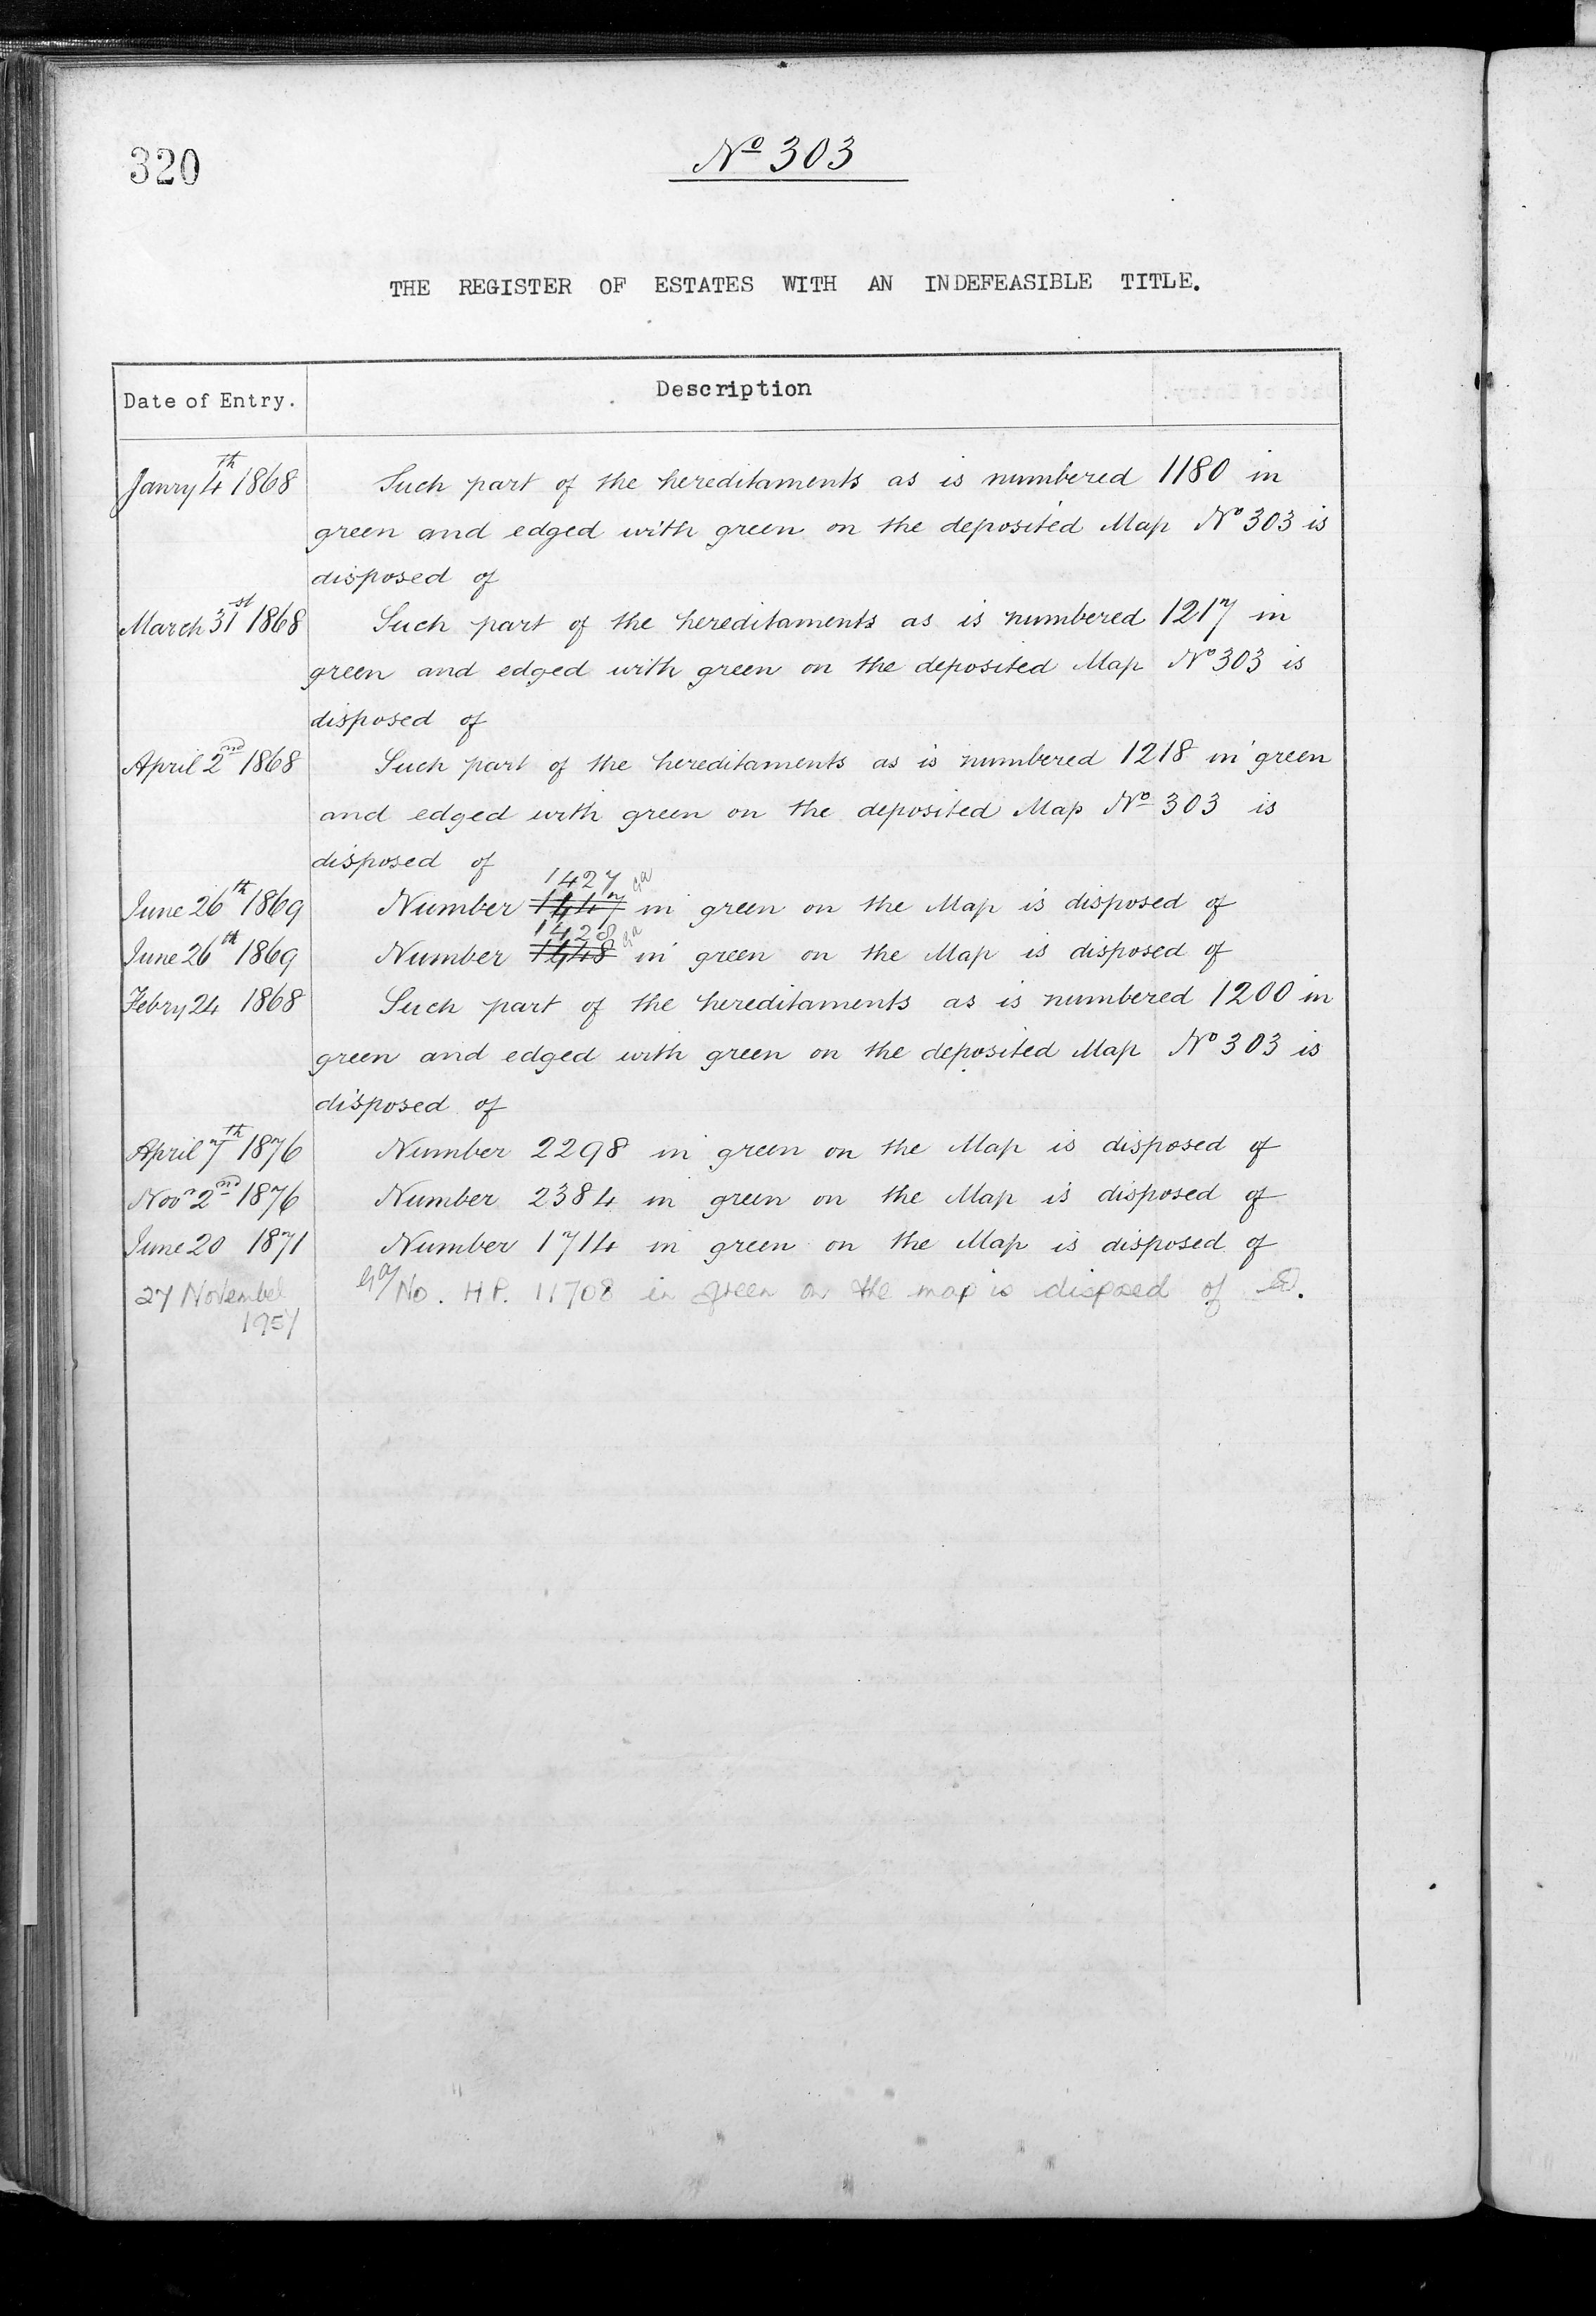 320
Nº 303
THE REGISTER OF ESTATES WITH AN INDEFEASIBLE TITLE.
Date of Entry. Description
Janry 4th 1868 Such part of the hereditaments as is numbered 1180 in
green and edged with green on the deposited Map Nº 303 is
disposed of
March 31st 1868 Such part of the hereditaments as is numbered 1217 in
green and edged with green on the deposited Map Nº 303 is
disposed of
April 2nd 1868 Such part of the hereditaments as is numbered 1218 in green
and edged with green on the deposited Map Nº 303 is
disposed of
1427
June 26th 1869 Number 1447 in green on the Map is disposed of
1428
June 26th 1869 Number 1448 in green on the Map is disposed of
Febry 24 1868 Such part of the hereditaments as is numbered 1200 in
green and edged with green on the deposited Map Nº 303 is
disposed of
April 7th 1876 Number 2298 in green on the Map is disposed of
Novr 2nd 1876 Number 2384 in green on the Map is disposed of
June 20 1871 Number 1714 in green on the Map is disposed of
27 November No. H.P. 11708 in green on the map is disposed of